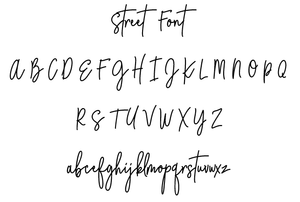 Street Font
A B C D E F G H I J K L M N O P Q
R S T U V W X Y Z
abcdefghijklmnopqrstuvwxz